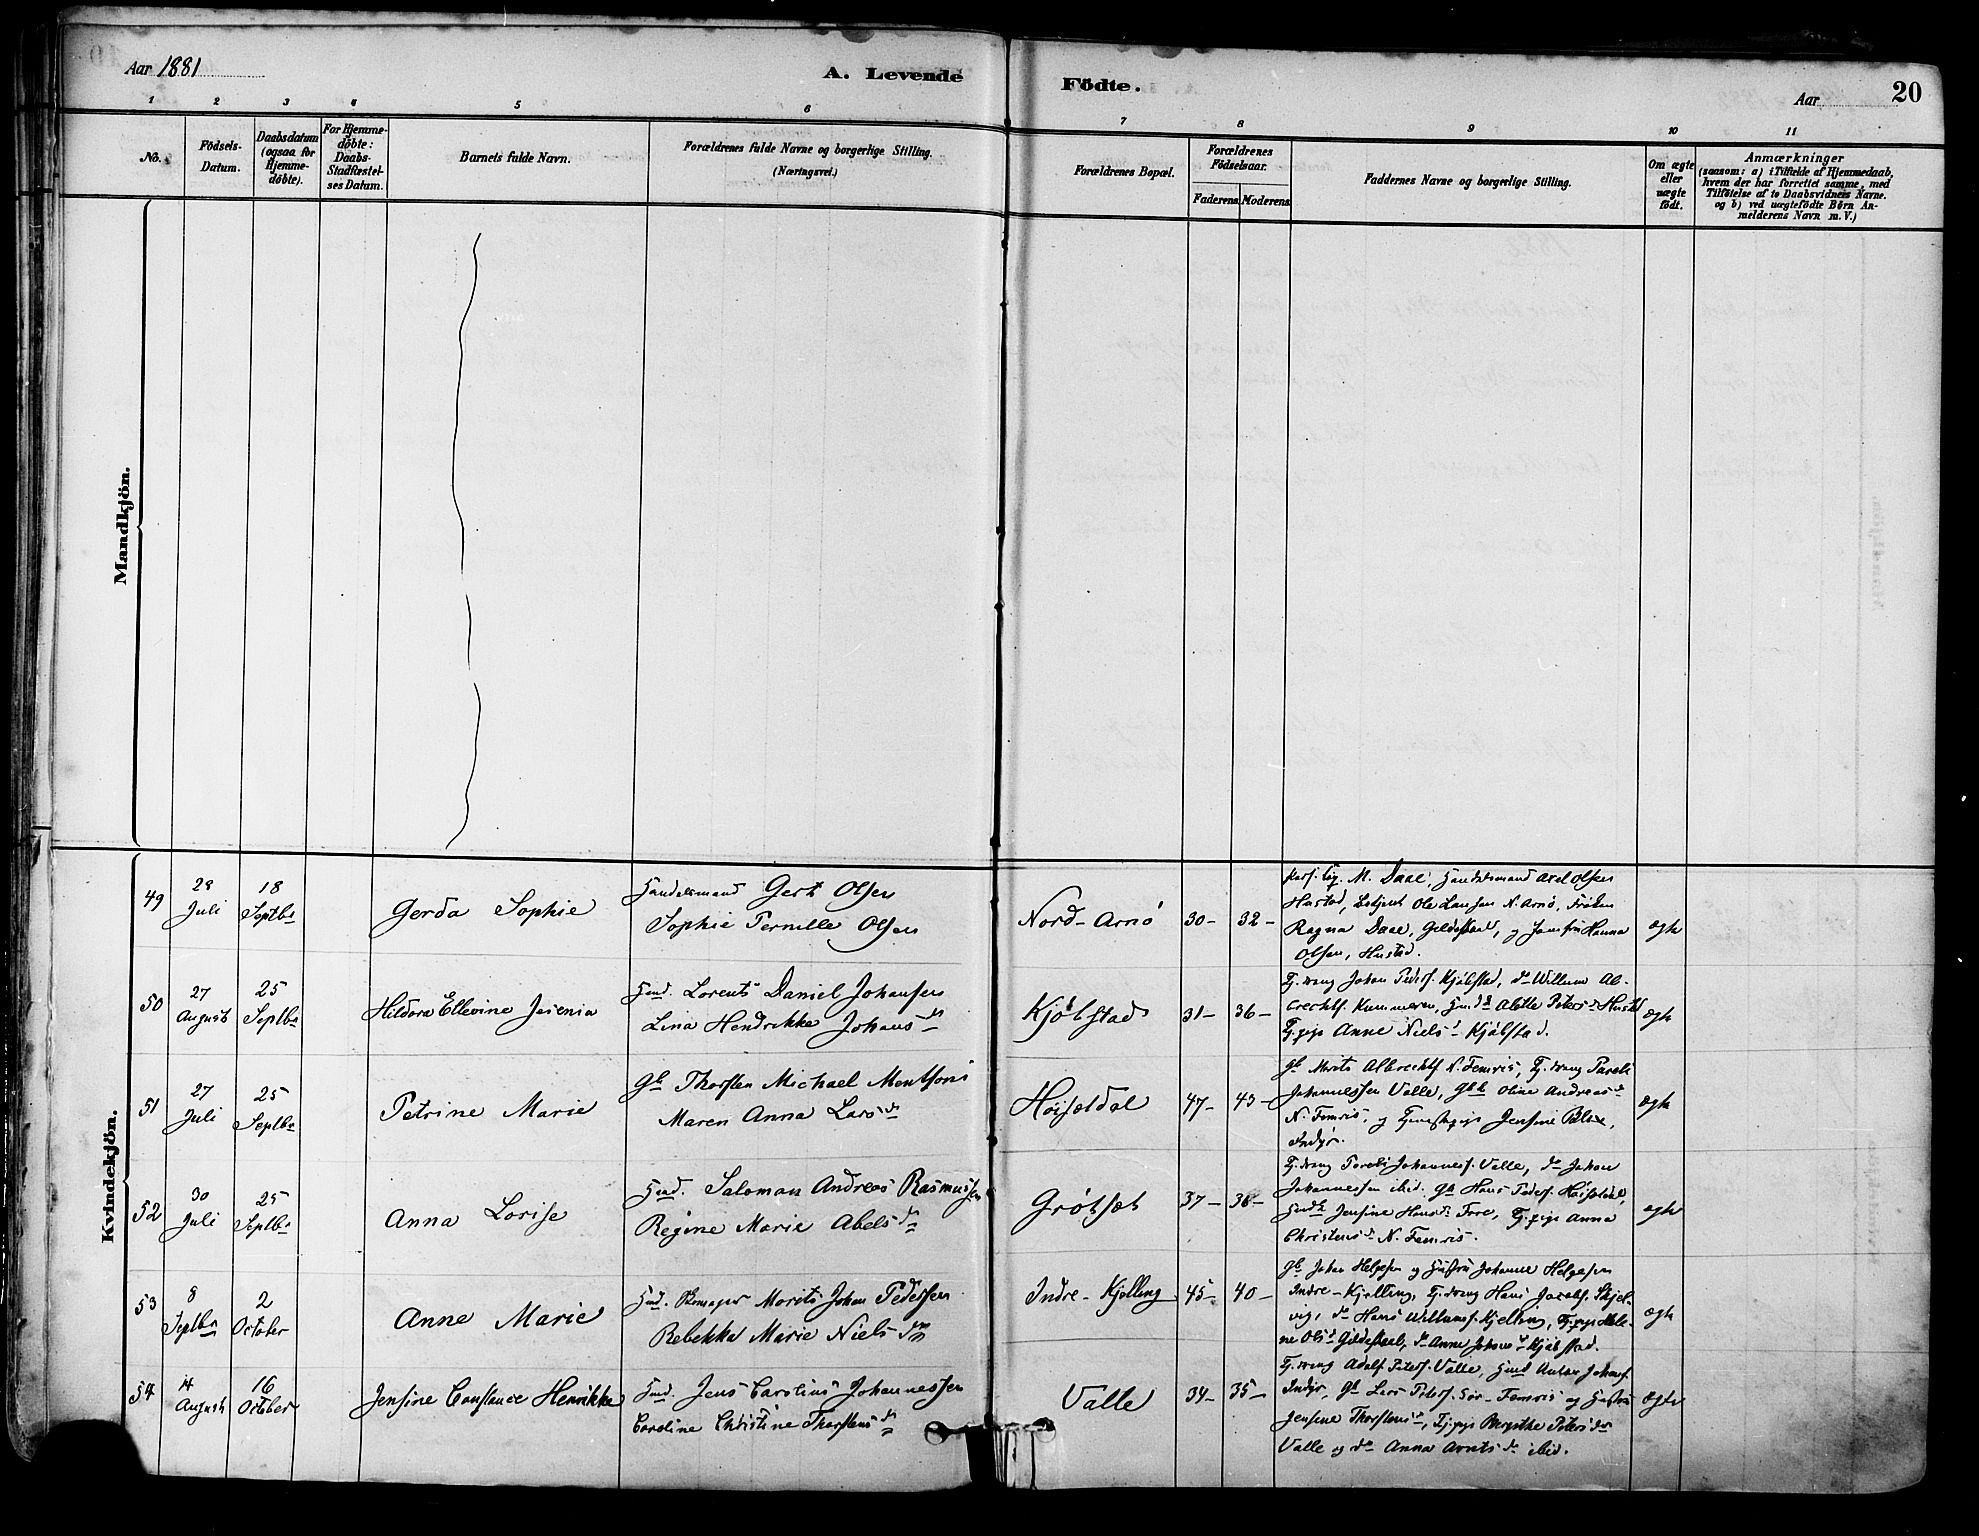 Aar 1881
A. Levende Födte.
Aar
20
1 2 3 4 5 6 7 8 9 10 11
No.
Födsels-
Datum.
Daabsdatum
(ogsaa for
Hjemme-
döbte).
For Hjemme-
döbte:
Daabs-
Stadfæstel-
ses Datum.
Barnets fulde Navn.
Forældrenes fulde Navne og borgerlige Stilling.
(Næringsvei.)
Forældrenes Bopæl.
Forældrenes
Födselsaar.
Faderens. Moderens.
Faddernes Navne og borgerlige Stilling.
Om ægte
eller
uægte
födt.
Anmærkninger
(saasom: a) i Tilfælde af Hjemmedaab,
hvem der har forrettet samme, med
Tilföielse af to Daabsvidners Navne.
og b) ved uægtefödte Börn An-
melderens Navn m. V.)
Mandkjön.
Kvindekjön.
49
28
Juli
18
Septbr
Gerda Sophie
Handelsmand Gert Olsen
Sophie Pernille Olsen
Nord-Arnö
30- 32-
M. Daae, Handelsmand Axel Olsen
Hustad, Betjent Ole Larsen N. Arnö, Fröken
Ragna Daae, Gildeskaal, og Jomfru Hanna
Olsen, Hustad.
ægte
50
27
August
25
Septbr
Hildora Ellevine Jesenia
Hmd. Lorents Daniel Johansen
Lina Hendrikke Johansdr
Kjöbstad
31- 36-
Tj.dreng Johan Peders. Kjöbstad, do Willum Al-
brechts. Kummeren, Petersdr Hustad
Tj.pige Anne Nielsd Kjöbstad.
ægte
51
27
Juli
25
Septbr
Petrine Marie
Gb Thorsten Michael Mentsons
Maren Anna Larsdr
Höifoldal
47- 43-
Gb Morits Albrechts. N. Femris, Tj.dreng Pareli
Johannessen Valle, Gbk Oline Andreasdr
N. Femris, og Tjenestepige Jensine
Indyr.
ægte
52
30
Juli
25
Septbr
Anna Lovise
Hmd. Saloman Andreas Rasmussen
Regine Marie Abelsdr
Grötsæt
37- 38-
Tj.dreng Pareli Johanness. Valle, do Johan
Johannessen ibid. Gb Hans Peders. Höifoldal,
Jensine Hansdr Tj.pige Anna
Christensdr N. Femris.
ægte
53
8
Septbr
2
October
Anne Marie
Hmd. Morits Johan Pedersen
Rebekka Marie Nielsdr
Indre-Kjelling
45- 40-
Gb Johan Helgesen og Hustru Johanne Helgesen
Indre-Kjelling, Tj.dreng Hans Jacobs. Skjel-
vig, do Hans Willums. Kjelling, Tj.pige
Olsd Gildeskaal, do Anne Johansd Kjöbstad.
ægte
54
14
August
16
October
Jensine Constance Henrikke
Hmd. Jens Carolius Johannessen
Caroline Christine Thorstensdr
Valle
34- 35-
Tj.dreng Adolf Peters. Valle, Hmd Anton Johans.
Indyr, Gb Lars Peters. Sör-Femris og Hustru
Jensine Thorstensd, Tj.pige Bergithe Petersdr
Valle og do Anna Arntsdr ibid.
ægte